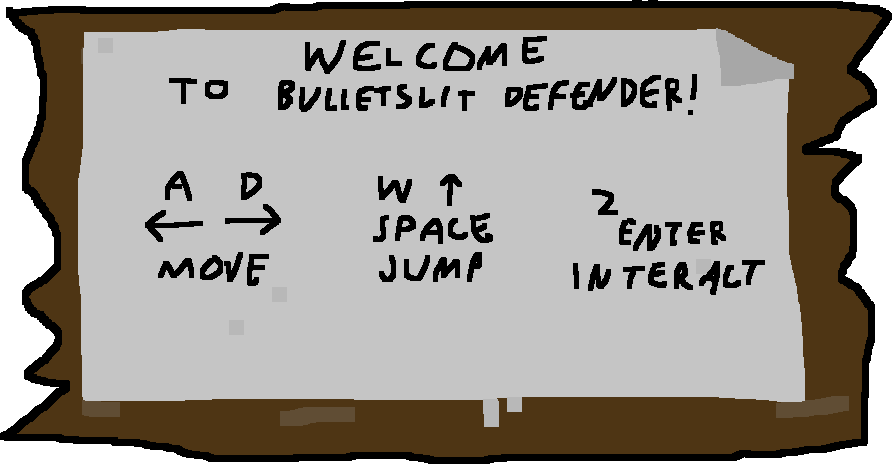 WELCOME
TO BULLETSLIT DEFENDER!
A D
← →
MOVE
W ↑
SPACE
JUMP
2
ENTER
INTERACT